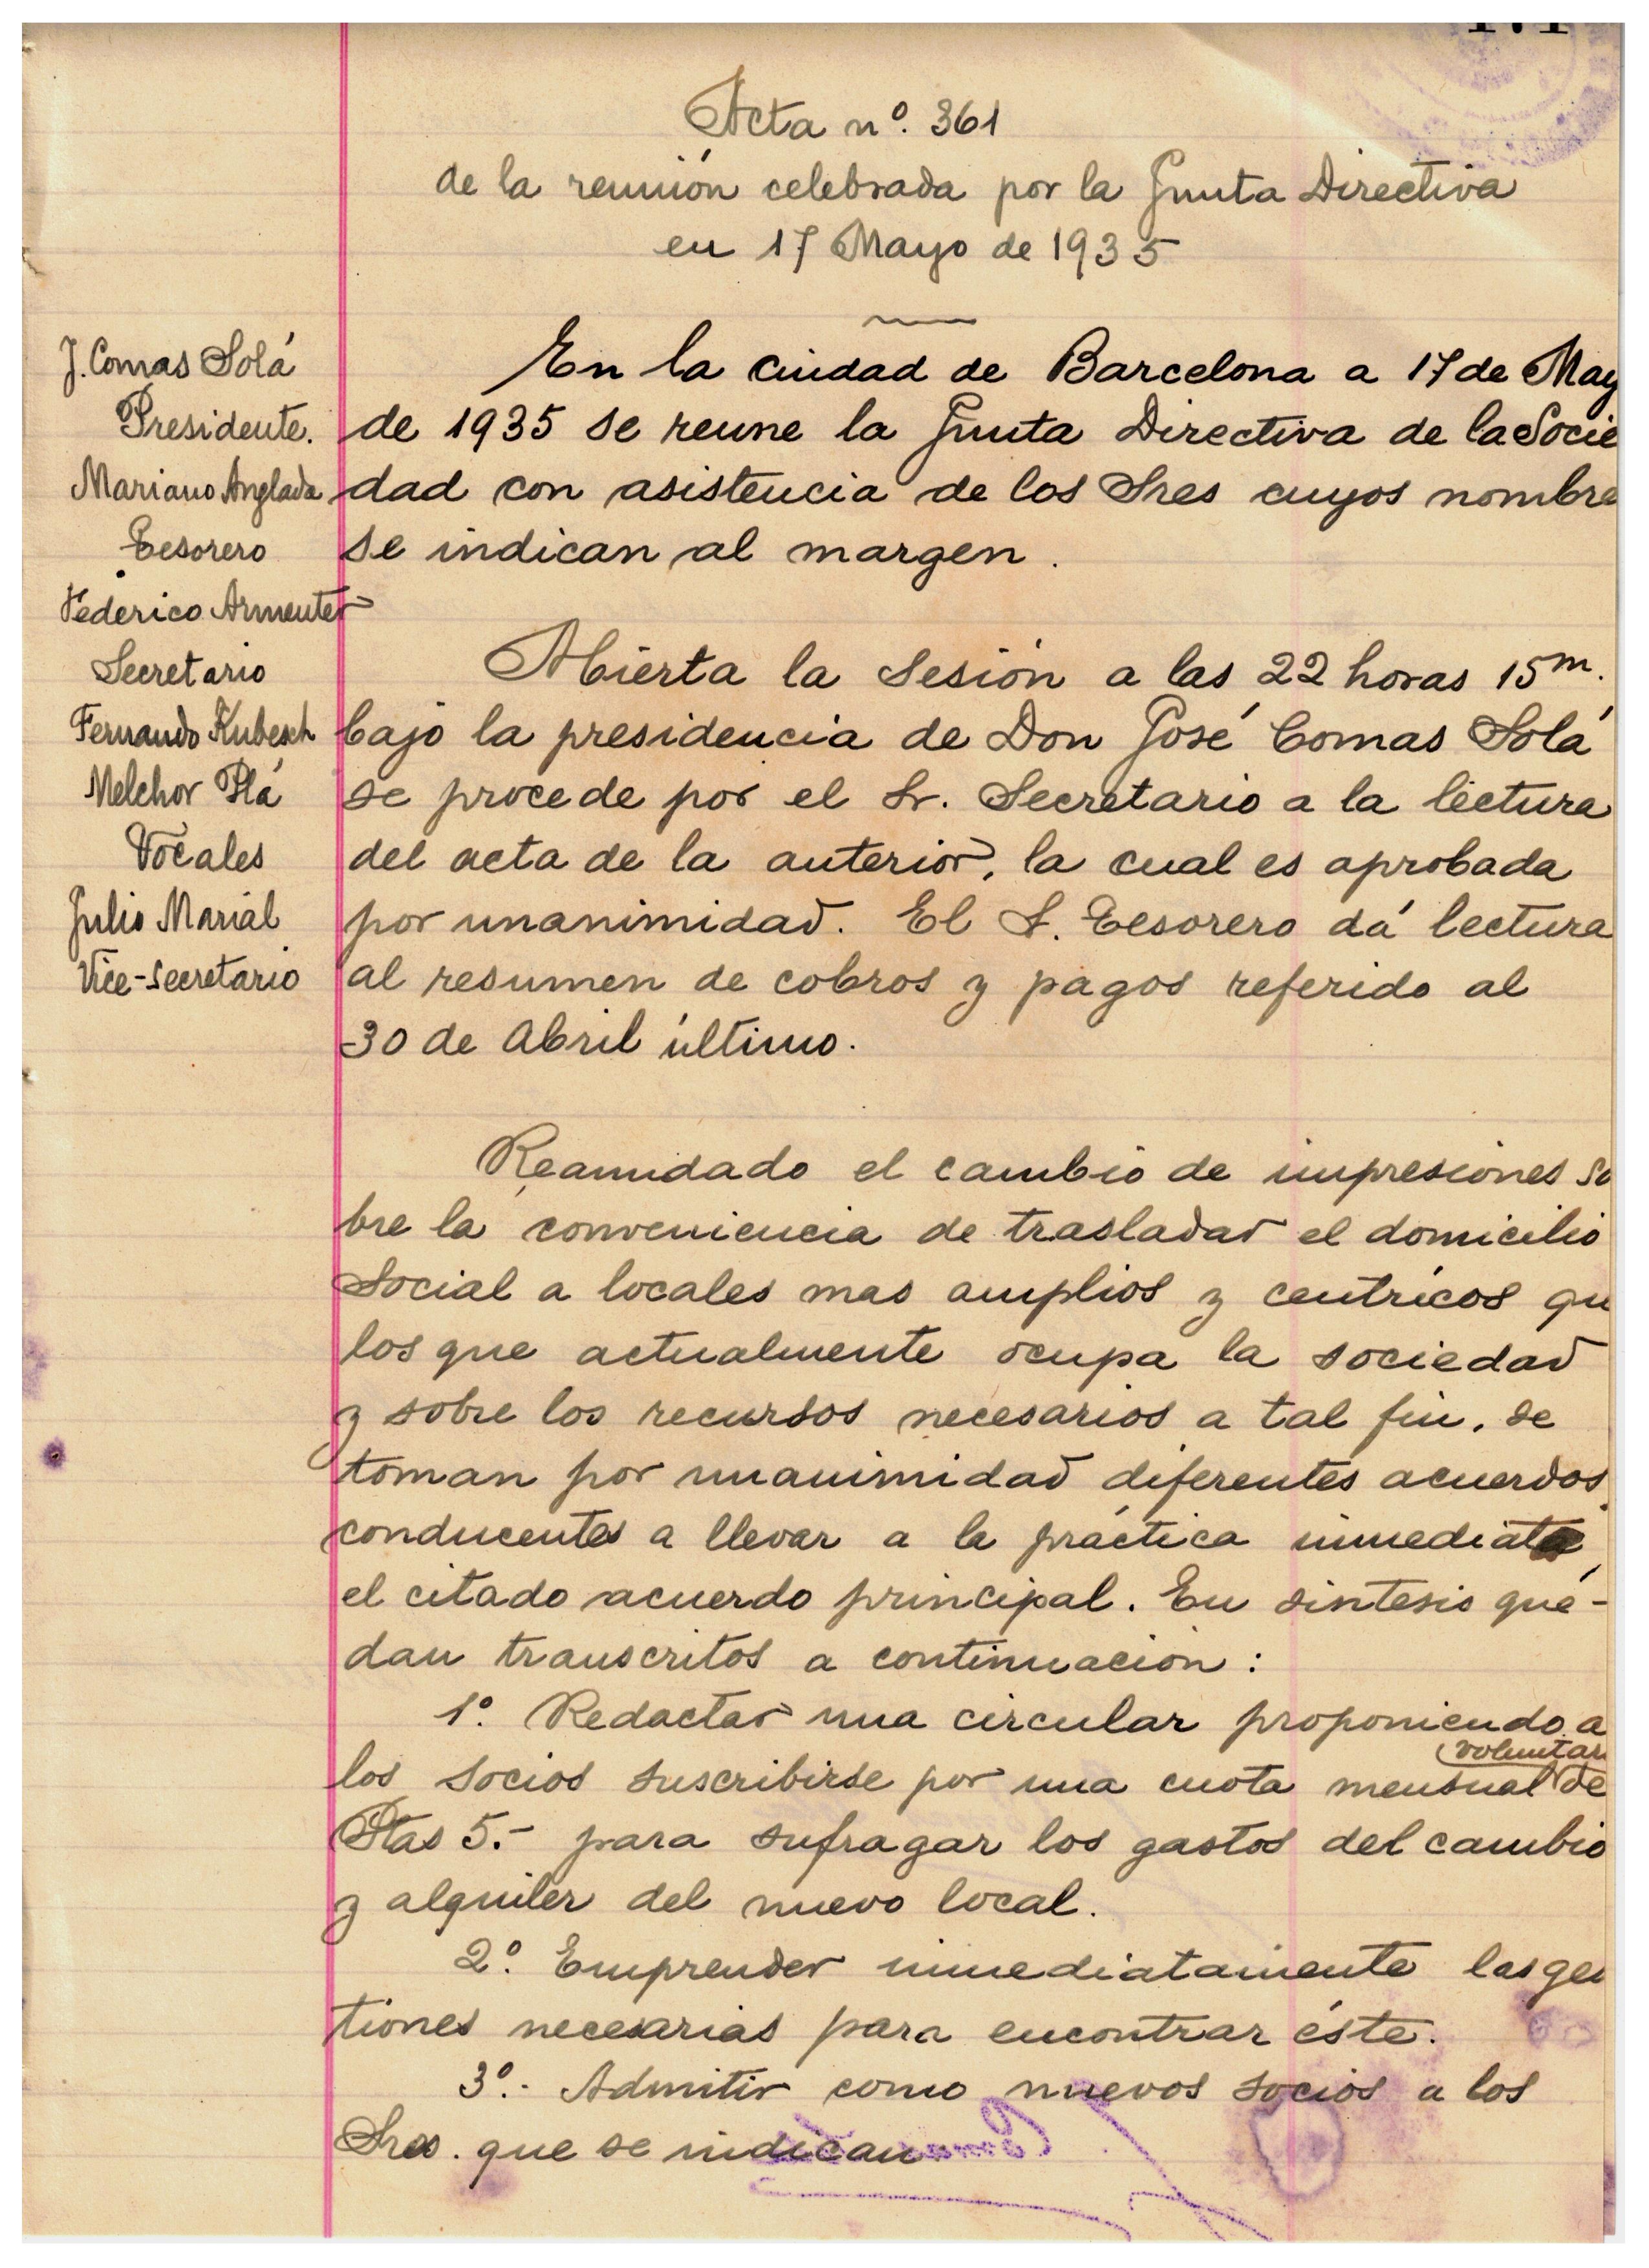 Acta nº. 361
de la reunión celebrada por la Junta Directiva
en 17 Mayo de 1935
J. Comas Solá
Presidente.
Mariano Anglada
Tesorero
Federico Armenter
Secretario
Fernando Kubesch
Melchor Plá
Vocales
Julio Marial
Vice-secretario
En la ciudad de Barcelona a 17 de May
de 1935 se reune la Junta Directiva de la Socie
dad con asistencia de los Sres cuyos nombre
se indican al margen.
Abierta la sesión a las 22 horas 15m.
bajo la presidencia de Don José Comas Solá
se procede por el Sr. Secretario a la lectura
del acta de la anterior, la cual es aprobada
por unanimidad. El S. Tesorero dá lectura
al resumen de cobros y pagos referido al
30 de Abril último.
Reanudado el cambio de impresiones so
bre la conveniencia de trasladar el domicilio
Social a locales mas amplios y centrícos qu
los que actualmente ocupa la sociedad
y sobre los recursos necesarios a tal fin, se
toman por unanimidad diferentes acuerdos
conducentes a llevar a la práctica inmediata
el citado acuerdo principal. En sintesis que-
dan transcritos a continuación:
1º. Redactar una circular proponiendo a
voluntari
los socios suscribirse por una cuota mensual de
Ptas 5.- para sufragar los gastos del cambio
y alquiler del nuevo local.
2º. Emprender inmediatamente las ges
tiones necesarias para encontrar éste.
3º.- Admitir como nuevos socios a los
Sres. que se indican